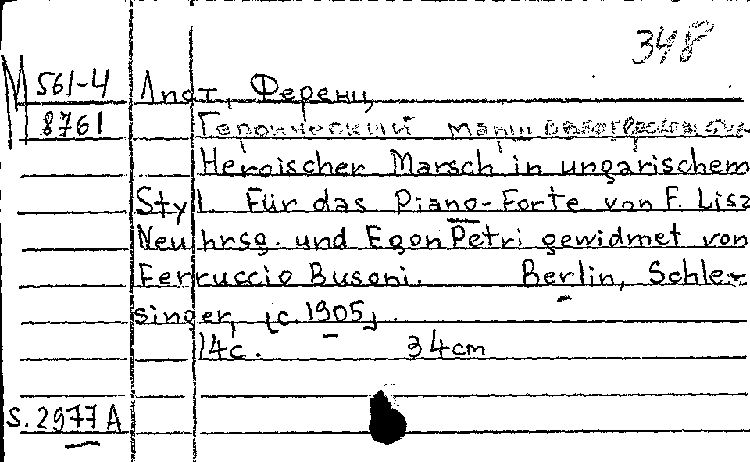 348
М 561-4 Лист, Ференц
8761 Героический марш в венгерском сти
Heroischer Marsch in ungarischem
Styl. Für das Piano-Forte von F. Lisz
Neu hrsg. und Egon Petri gewidmet von
Ferruccio Busoni. Berlin, Schle-
singer, [c. 1905].
14c. 34cm
S. 2977 A